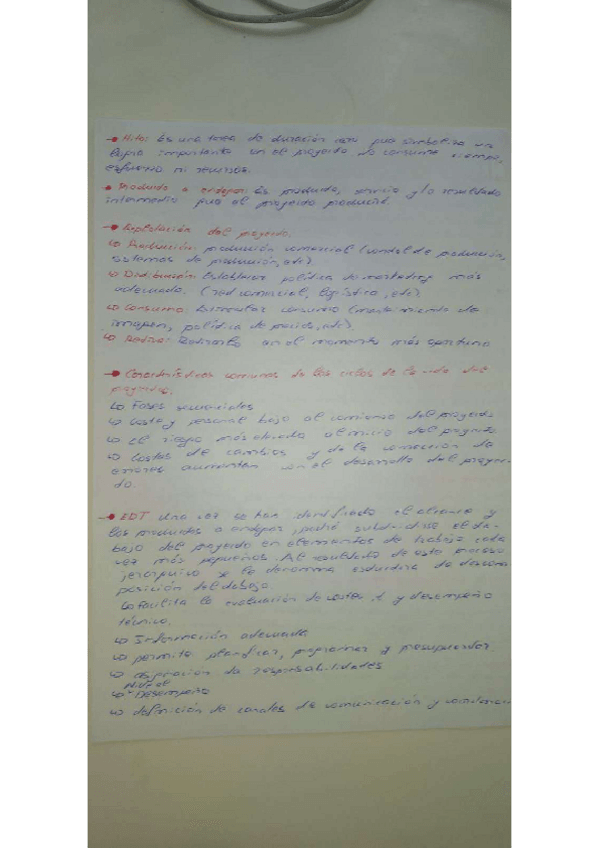 Hito: Es una tarea de duración cero que simboliza un
logro importante en el proyecto. No consume tiempo,
esfuerzo ni recursos.
Producto a entregar: Es producto, servicio y/o resultado
intermedio para el proyecto producir.
Explotación del proyecto.
Producción: producción comercial (control de producción,
sistemas de producción, etc)
Distribución: Establecer política de marketing más
adecuada. (red comercial, logística, etc)
Consumo: Estimular consumo (mantenimiento de
imagen, política de precios, etc).
Retiro: Retirarlo en el momento más oportuno
Características comunes de los ciclos de la vida del
proyecto.
Fases secuenciales
Coste y personal bajo al comienzo del proyecto
El riesgo más elevado al inicio del proyecto.
Costes de cambios y de la corrección de
errores aumentan con el desarrollo del proyec-
to.
EDT Una vez se han identificado el alcance y
los productos a entregar, podrá subdividirse el tra-
bajo del proyecto en elementos de trabajo cada
vez más pequeños. Al resultado de este proceso
jerárquico se le denomina estructura de descom
posición del trabajo.
Facilita la evaluación de costes, t y desempeño
técnico.
Información adecuada
permite planificar, programar y presupuestar
asignación de responsabilidades
Desempeño
definición de canales de comunicación y